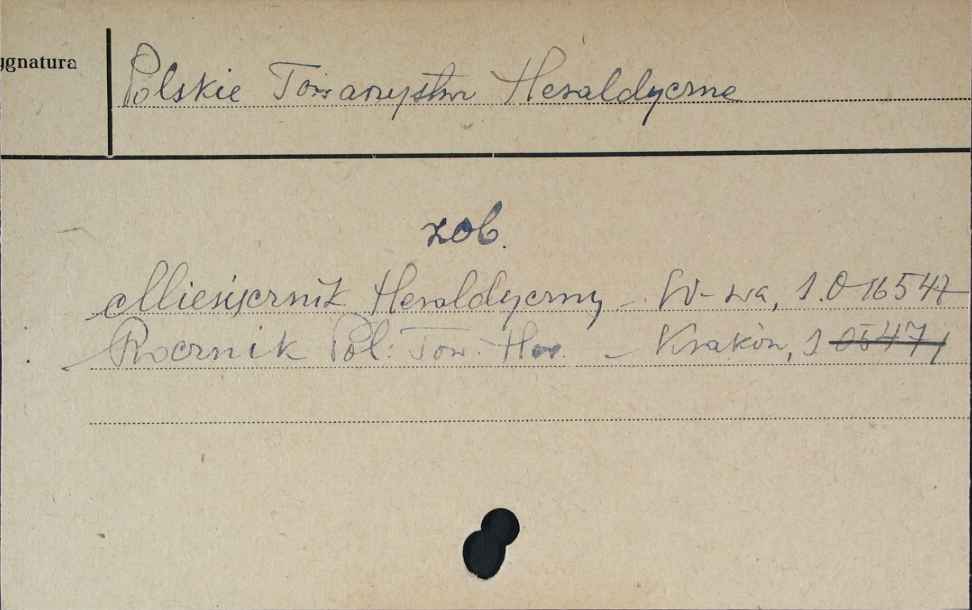 ygnatura
Polskie Towarzystwo Heraldyczne
zob.
Miesięcznik Heraldyczny – W-wa, 1.0 16547
Rocznik Pol. Tow. Her. – Kraków, 1 05471